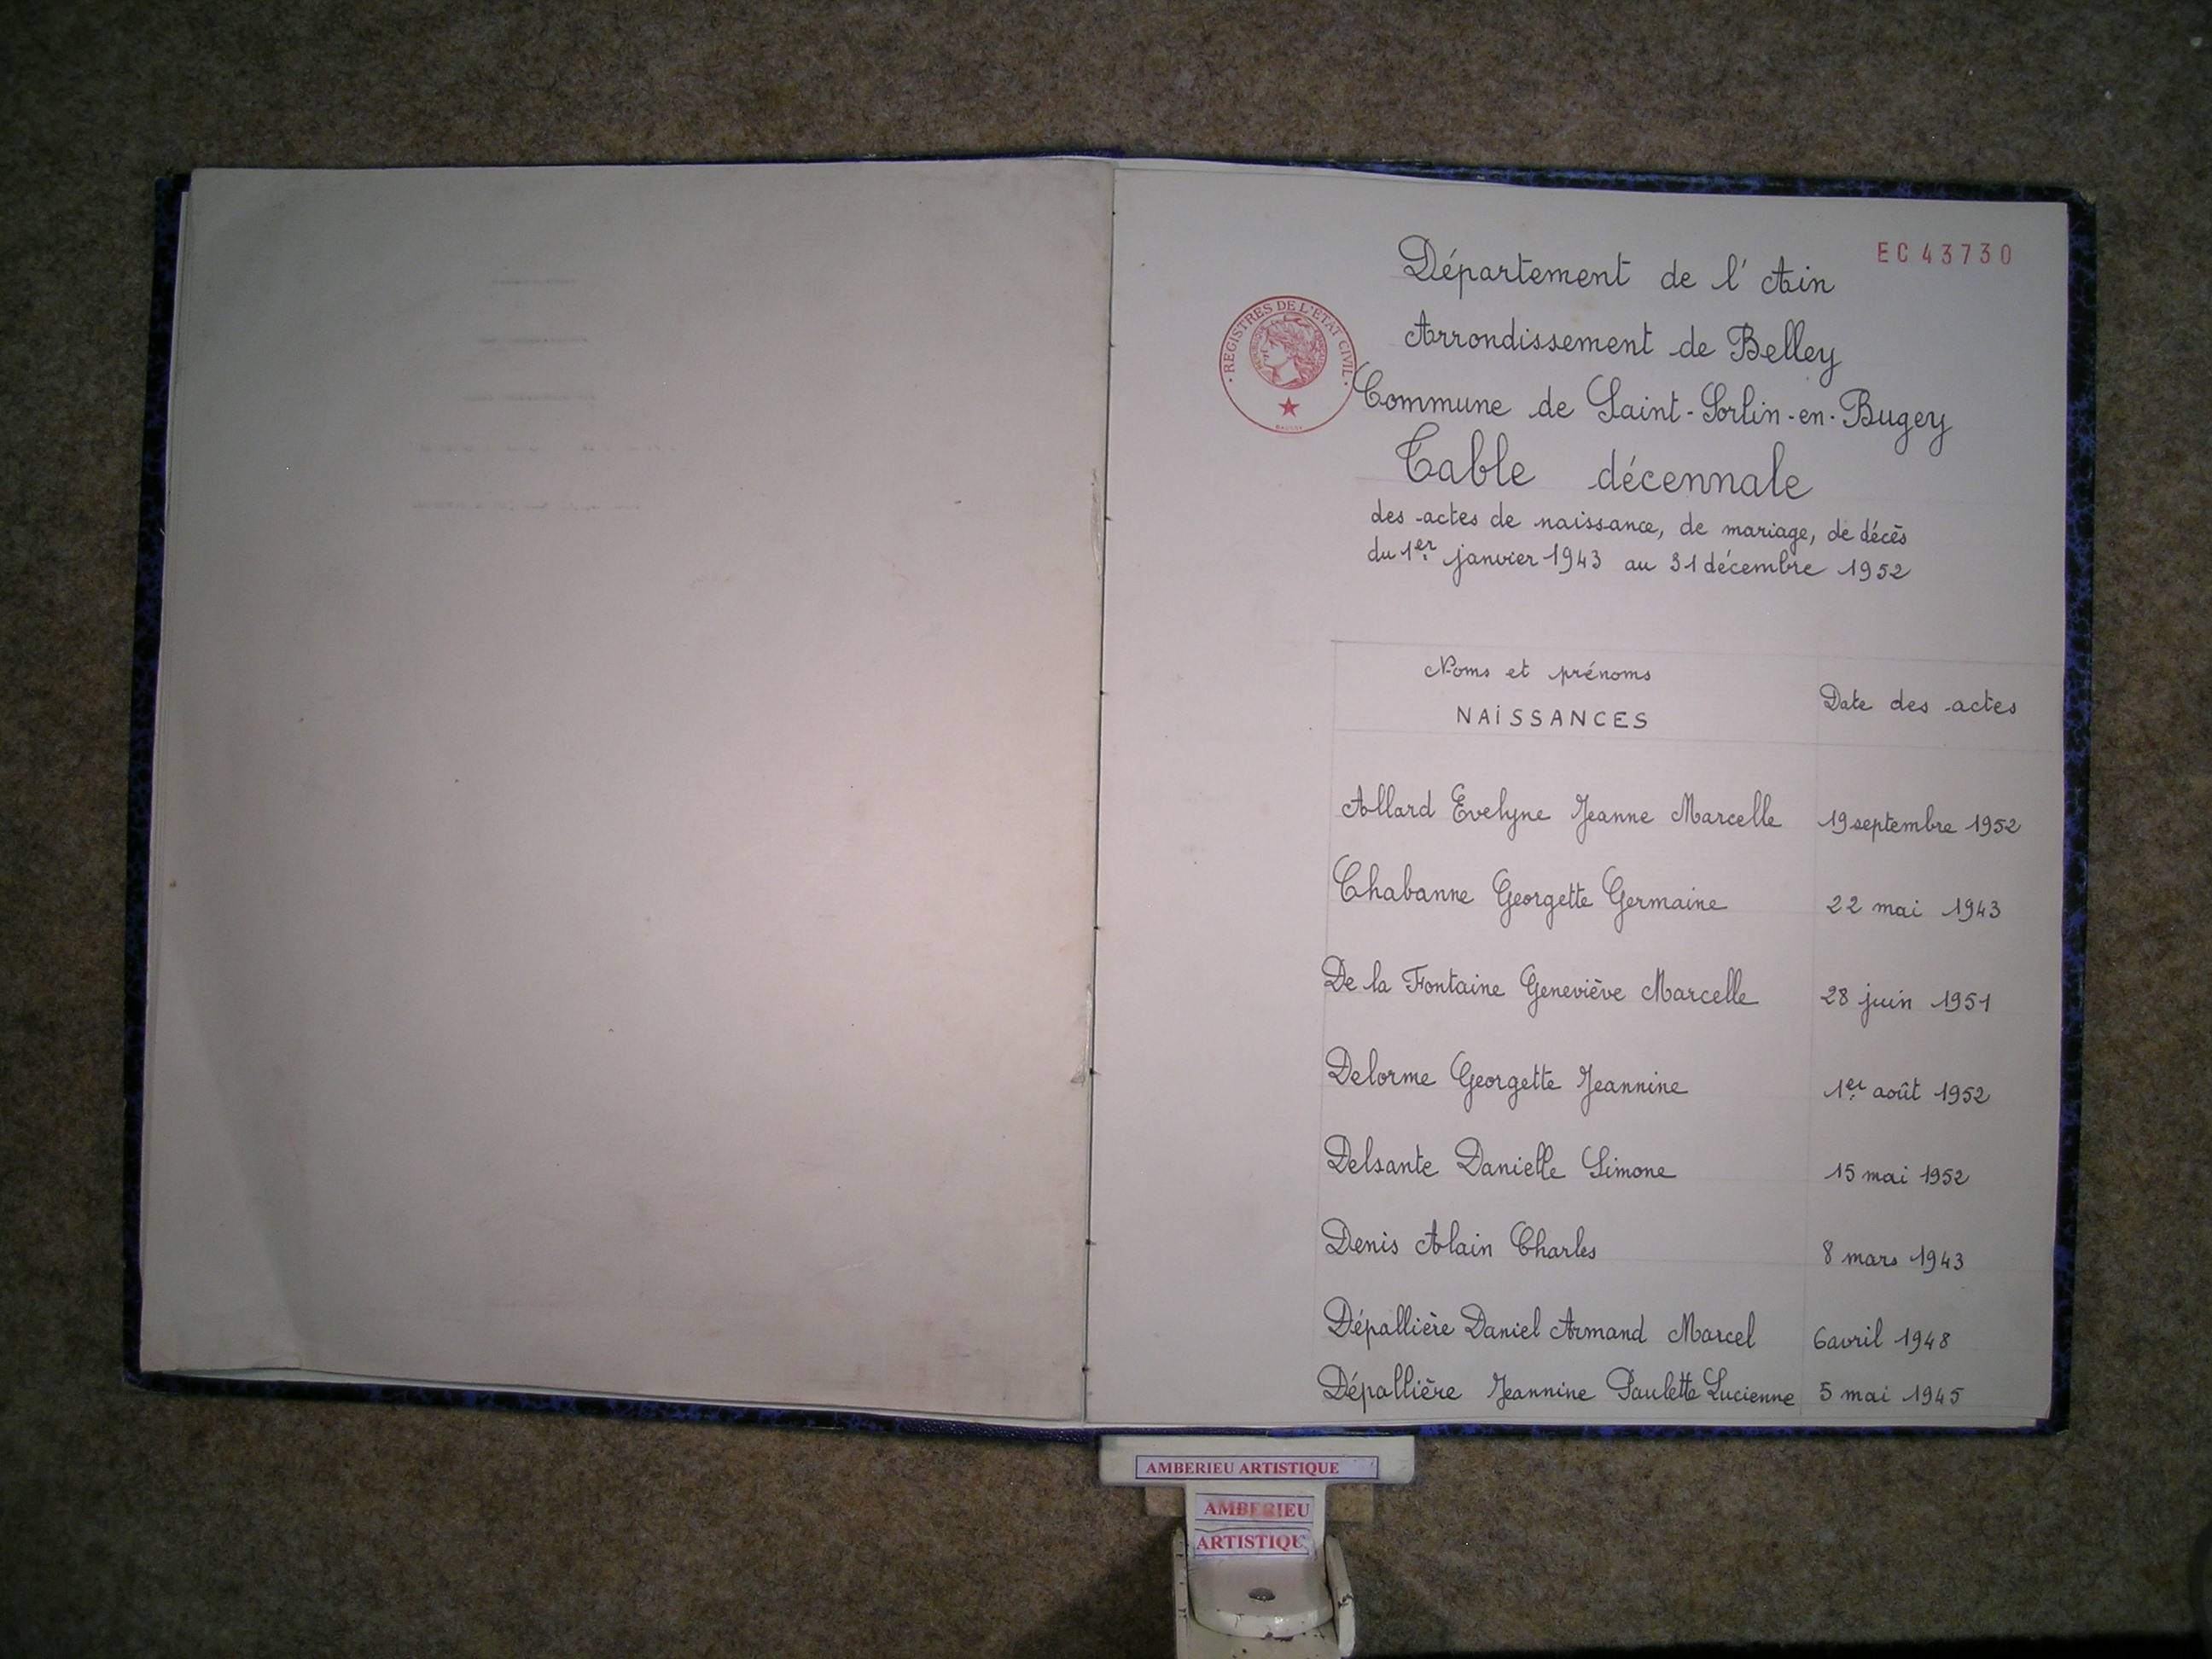 EC 43730
Département de l'Ain
REGISTRES DE L'ETAT CIVIL
Arrondissement de Belley
Commune de Saint-Sorlin-en-Bugey
Table décennale
des actes de naissance, de mariage, de décès
du 1er janvier 1943 au 31 décembre 1952
Noms et prénoms
NAISSANCES
Date des actes
Allard Evelyne Jeanne Marcelle 19 septembre 1952
Chabanne Georgette Germaine 22 mai 1943
De la Fontaine Geneviève Marcelle 28 juin 1951
Delorme Georgette Jeannine 1er août 1952
Delsante Danielle Simone 15 mai 1952
Denis Alain Charles 8 mars 1943
Dépallière Daniel Armand Marcel 6 avril 1948
Dépallière Jeannine Paulette Lucienne 5 mai 1945
AMBERIEU ARTISTIQUE
AMBERIEU
ARTISTIQU